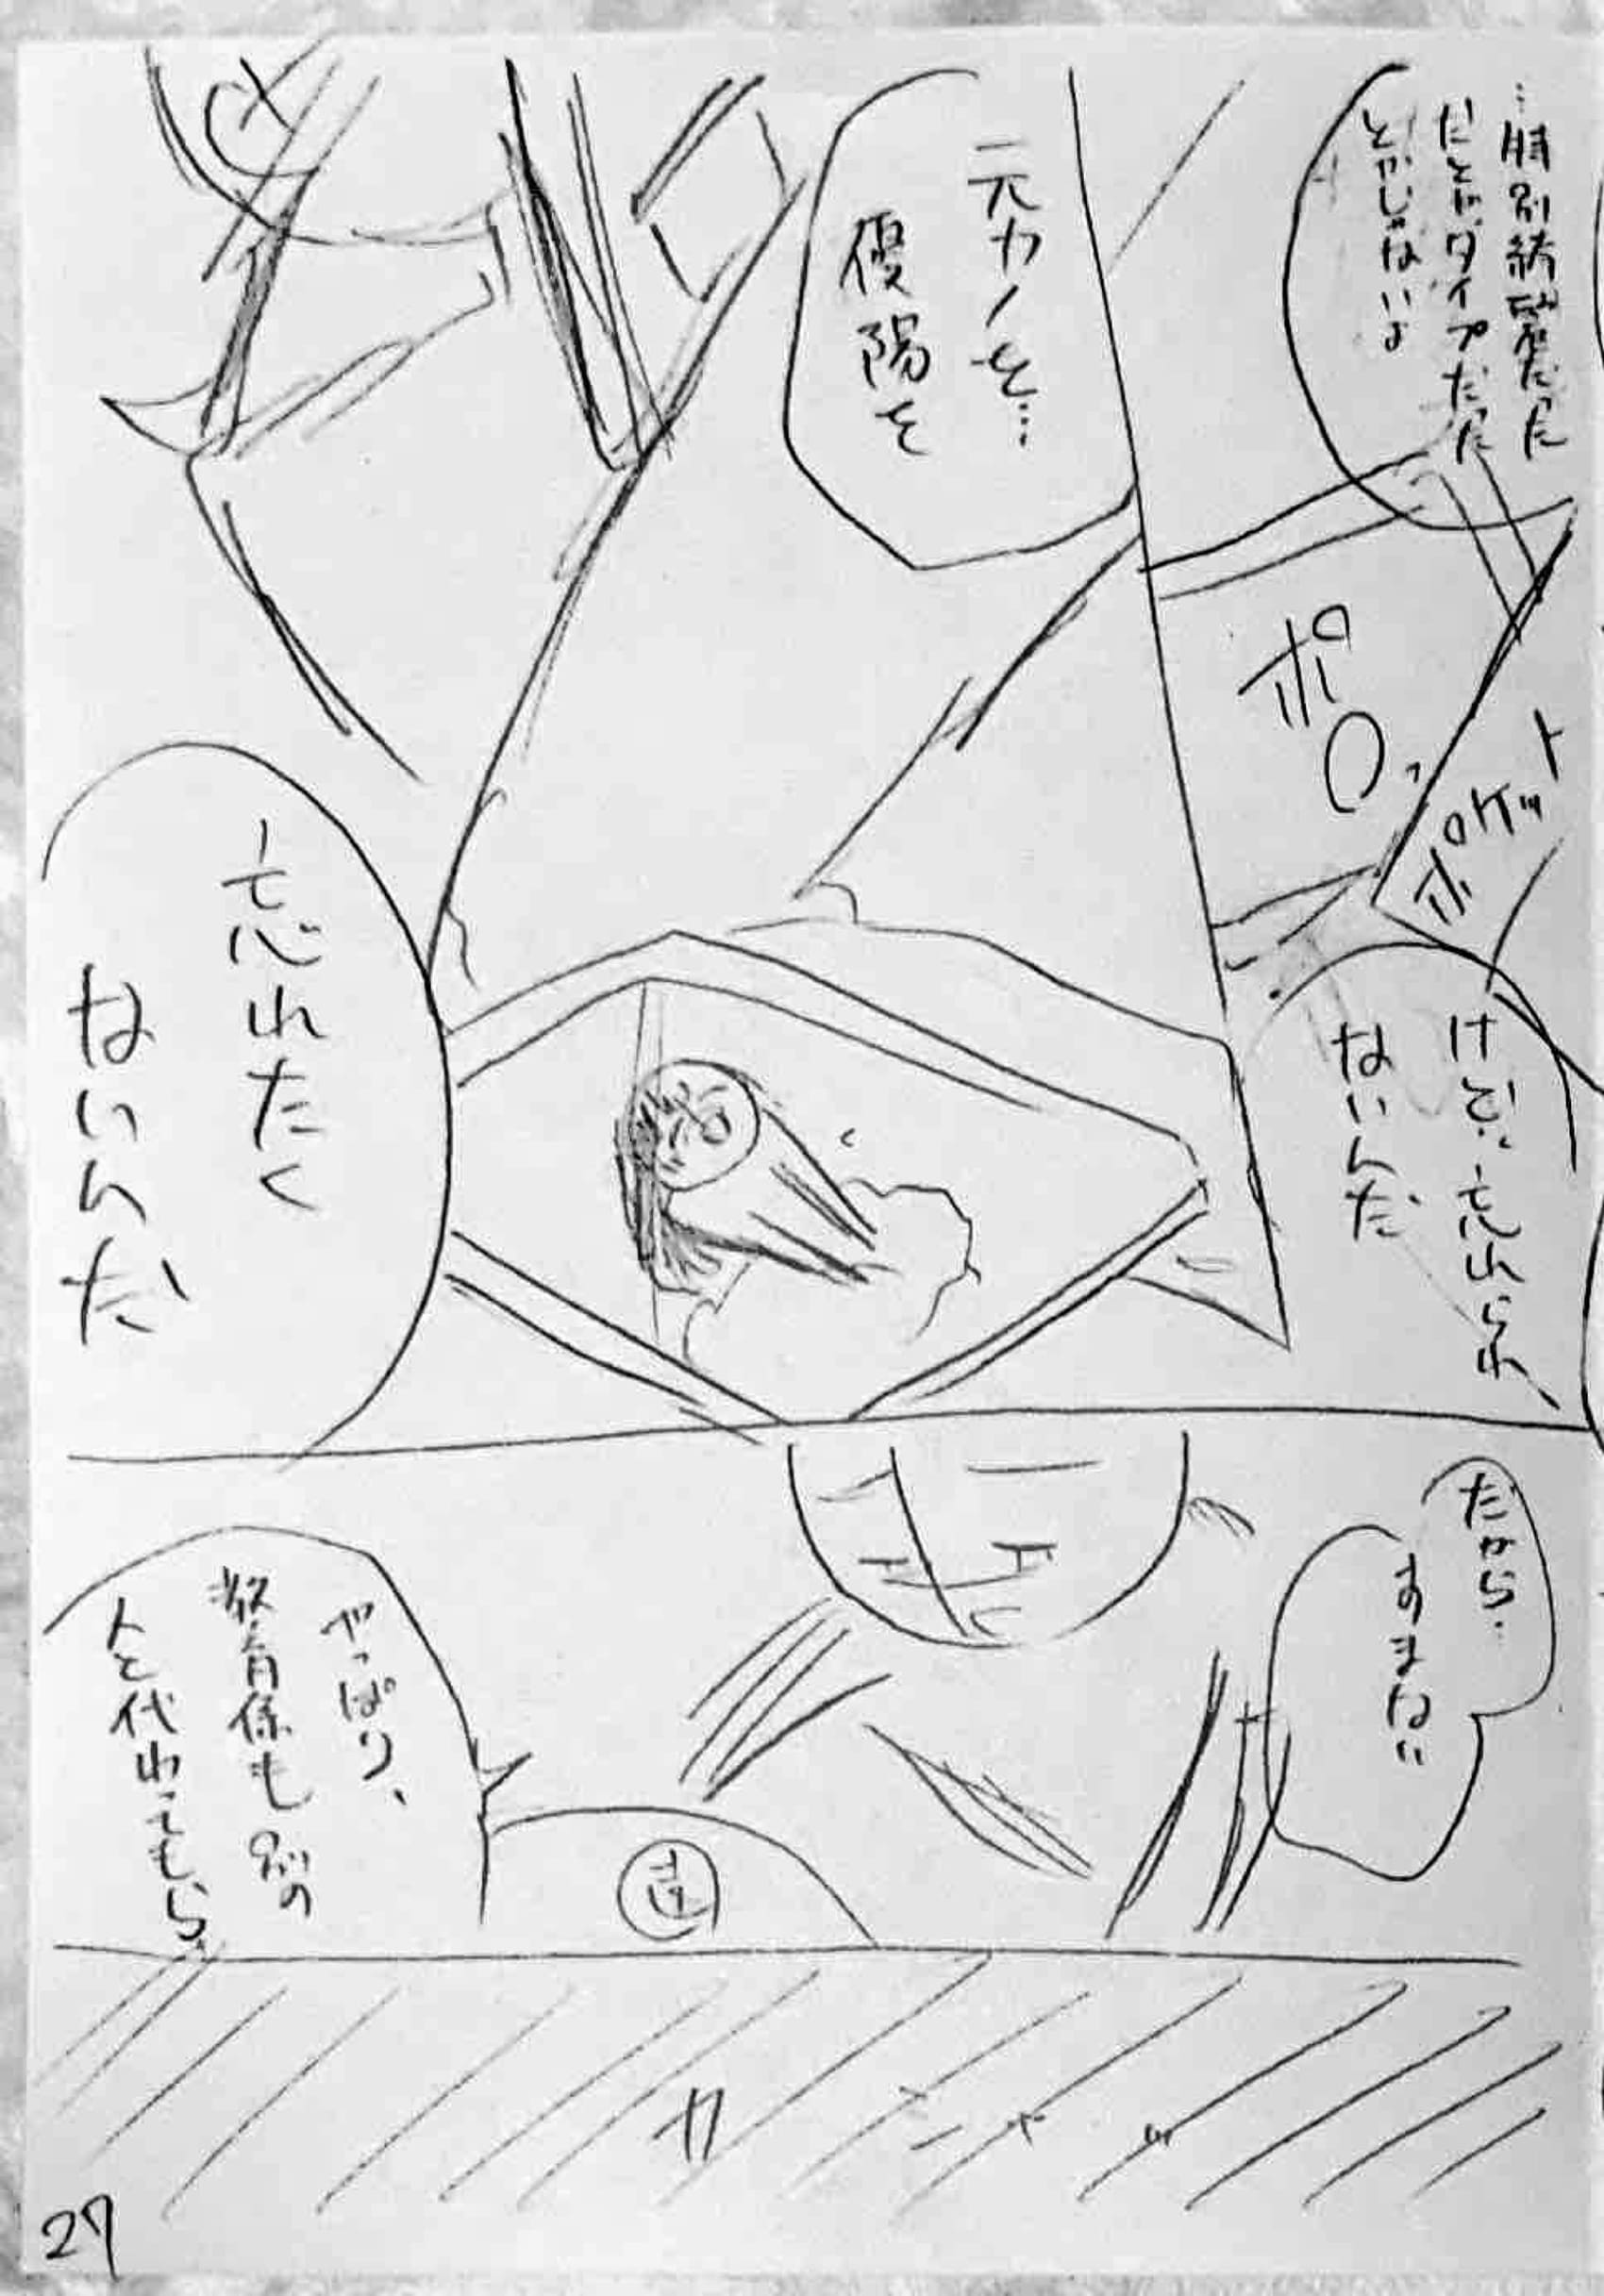 …特別綺麗だった
だとかタイプだった
とかじゃないよ
ポロ
ポケット
けど…忘れられ
ないんだ
元カノを…
優陽を
忘れたく
ないんだ
だから…
すまない
やっぱり、
教育係も別の
人と代わってもら
ガ
ニャ
27